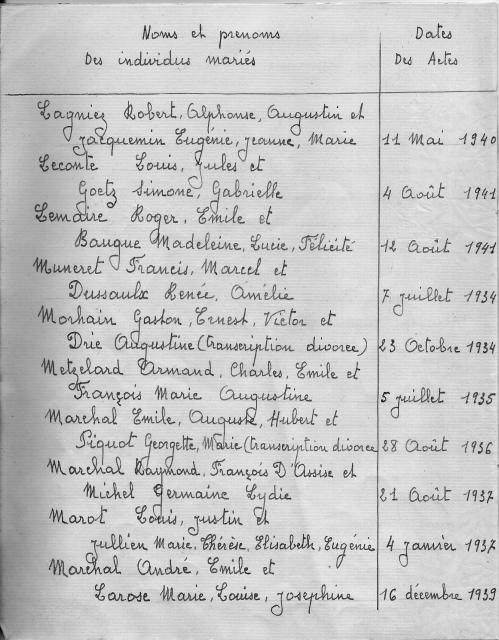 Noms et prenoms Dates
Des individus mariés Des Actes
Lagniez Robert, Alphonse, Augustin et
Jacquemin Eugénie, Jeanne, Marie 11 Mai 1940
Leconte Louis, Jules et
Goetz Simone, Gabrielle 4 Août 1941
Lemaire Roger, Emile et
Baugue Madeleine, Lucie, Félicité 12 Août 1941
Muneret Francis, Marcel et
Dussaulx Renée, Amélie 7 juillet 1934
Morhain Gaston, Ernest, Victor et
Drie Augustine (transcription divorce) 23 Octobre 1934
Metzelard Armand, Charles, Emile et
François Marie Augustine 5 juillet 1935
Marchal Emile, Auguste, Hubert et
Piquot Georgette, Marie (transcription divorce 28 Août 1936
Marchal Raymond, François D'Assise et
Michel Germaine Lydie 21 Août 1937
Marot Louis, justin et
Jullien Marie, Thérèse, Elisabeth, Eugénie 4 janvier 1937
Marchal André, Emile et
Larose Marie, Louise, Joséphine 16 décembre 1939